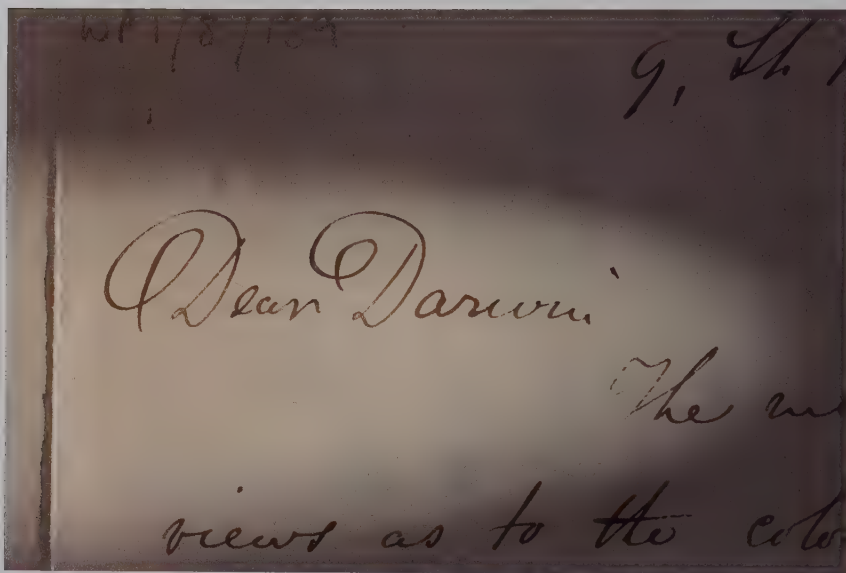 WP1/8/159
9, St
Dear Darwin
The
views as to the colo